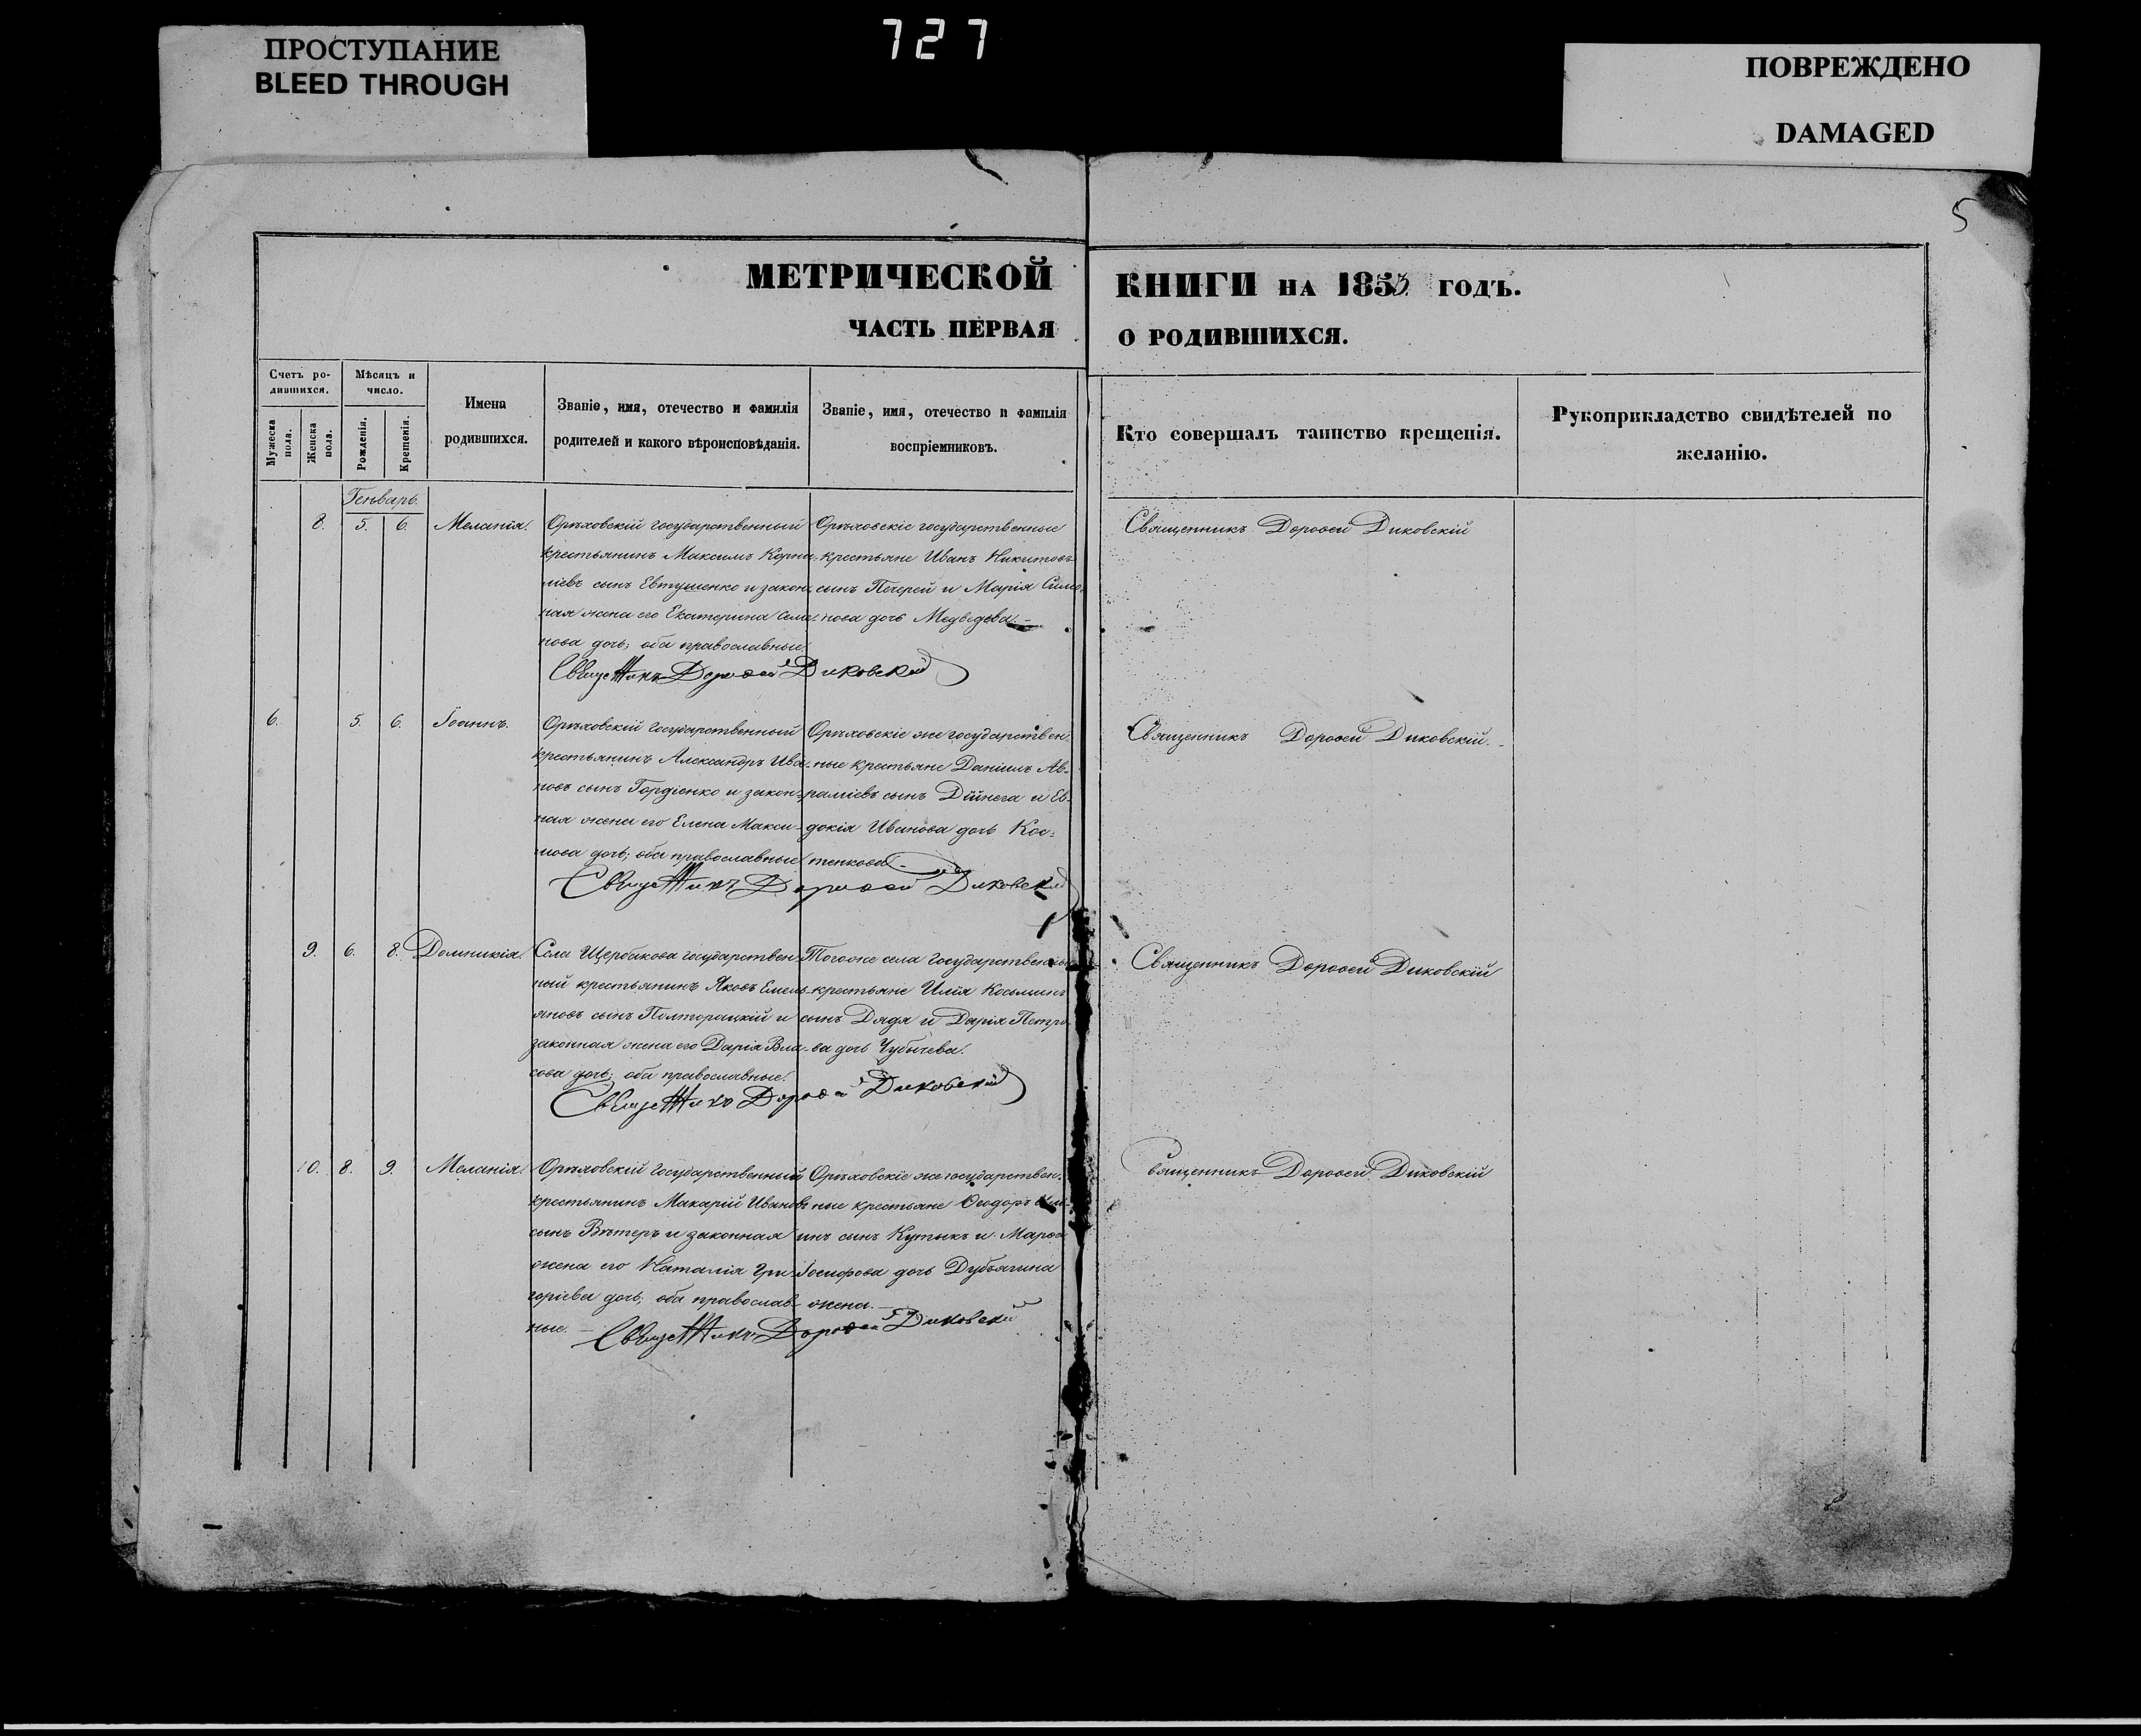 ПРОСТУПАНИЕ
BLEED THROUGH
727
ПОВРЕЖДЕНО
DAMAGED
5
МЕТРИЧЕСКОЙ КНИГИ НА 1853 ГОДЪ.
ЧАСТЬ ПЕРВАЯ О РОДИВШИХСЯ.
Счетъ ро-
дившихся.
Мужеска пола.
Женска пола.
Мѣсяцъ и
число.
Рожденія.
Крещенія.
Имена
родившихся.
Званіе, имя, отечество и фамилія
родителей и какого вѣроисповѣданія.
Званіе, имя, отечество и фамилія
воспріемниковъ.
Кто совершалъ таинство крещенія.
Рукоприкладство свидѣтелей по
желанію.
Генварь.
8. 5. 6. Меланія.
Орѣховскій государственный
крестьянинъ Максимъ Корни-
ліевъ сынъ Евтушенко и закон-
ная жена его Екатерина Семе-
нова дочь; оба православные.
Орѣховскіе государственные
крестьяне Иванъ Никитовъ
сынъ Печерей и Марія Симо-
нова дочь Медведева.
Священникъ Дороѳей Диковскій
Священникъ Дороѳей Диковскій
6. 5. 6. Іоаннъ.
Орѣховскій государственный
крестьянинъ Александръ Ива-
новъ сынъ Гордіенко и закон-
ная жена его Елена Макси-
мова дочь; оба православные
Орѣховскіе же государствен-
ные крестьяне Даніилъ Ав-
раміевъ сынъ Дійнега и Ев-
докія Иванова дочь Кос-
тенкова
Священникъ Дороѳей Диковскій
Священникъ Дороѳей Диковскій.
9. 6. 8. Домникія.
Села Щербакова государствен-
ный крестьянинъ Яковъ Емель-
яновъ сынъ Полторацкій и
законная жена его Дарія Вла-
сова дочь; оба православные.
Тогоже села государственные
крестьяне Илія Косьминъ
сынъ Дядя и Дарія Петро-
ва дочь Чубычева.
Священникъ Дороѳей Диковскій
Священникъ Дороѳей Диковскій
10. 8. 9. Меланія.
Орѣховскій государственный
крестьянинъ Макарій Ивановъ
сынъ Вѣтеръ и законная
жена его Наталія Гри-
горіева дочь; оба православ-
ные.
Орѣховскіе же государствен-
ные крестьяне Ѳеодоръ
инъ сынъ Кутыкъ и Марѳа
Іосифова дочь Дубягина
жена.
Священникъ Дороѳей Диковскій
Священникъ Дороѳей Диковскій